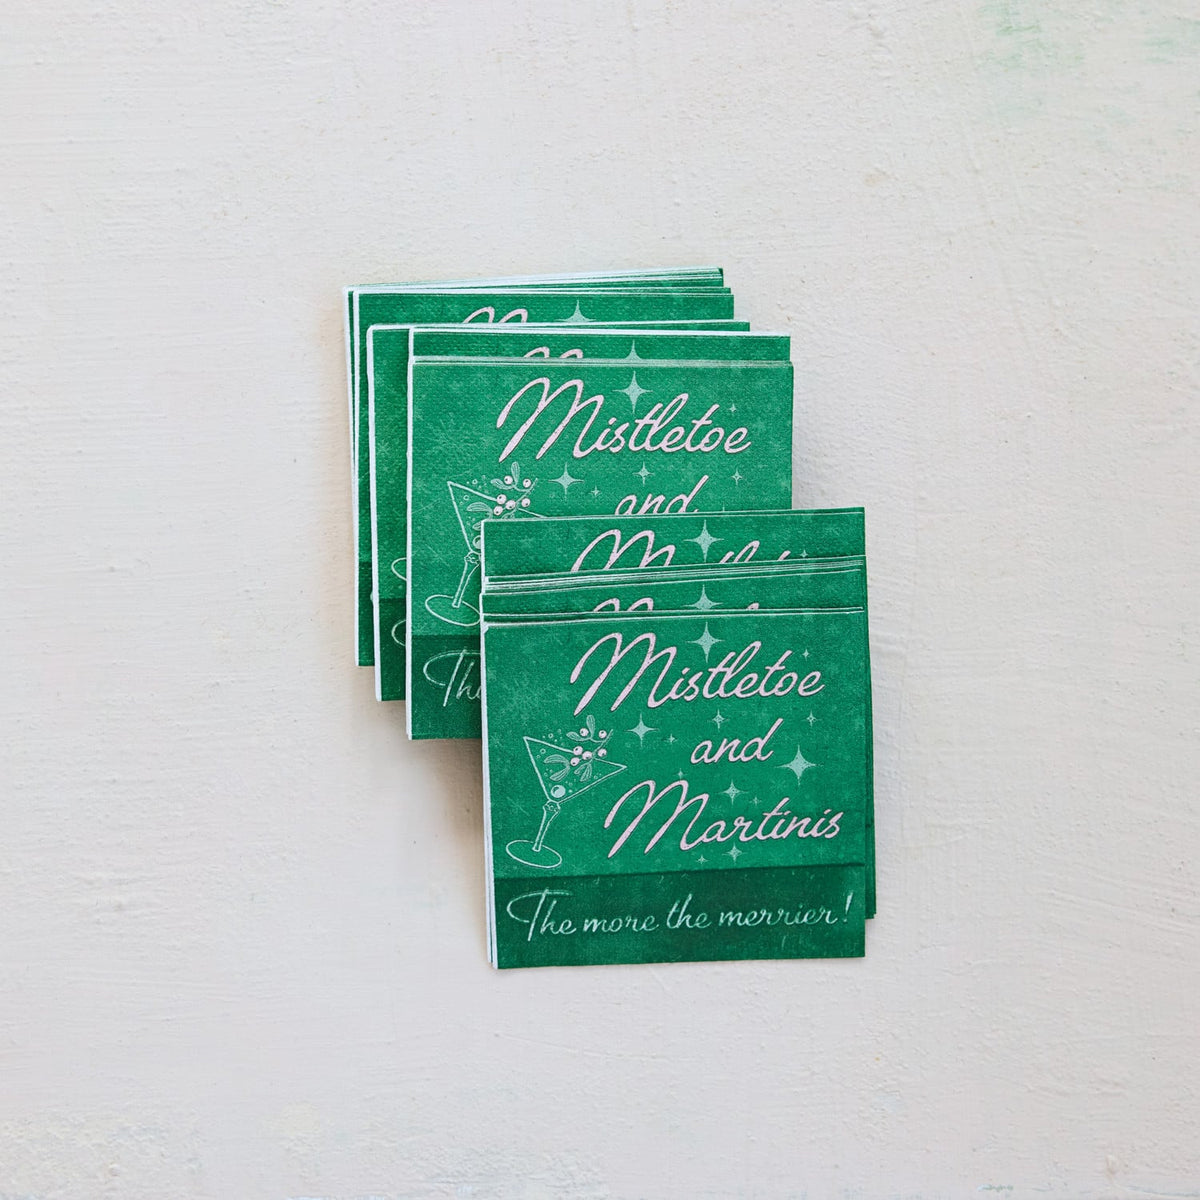 Mistletoe
and
Mistletoe
and
Martinis
The more the merrier!